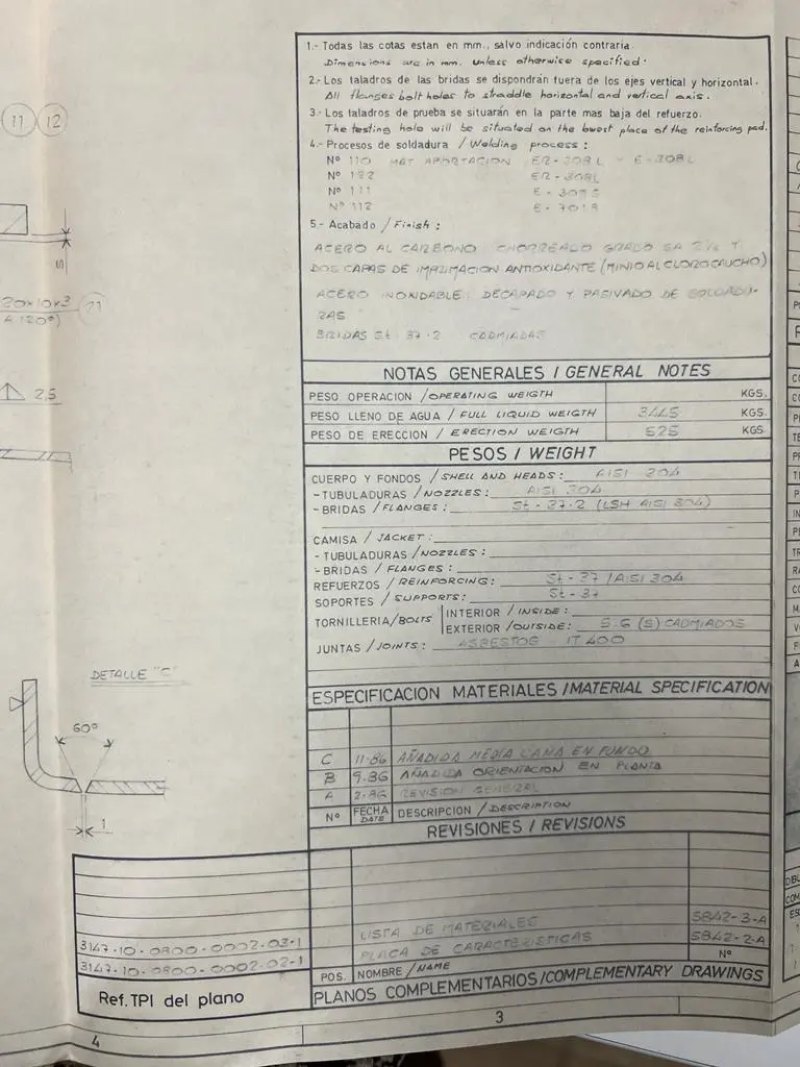 1.- Todas las cotas estan en mm., salvo indicación contraria.
Dimensions are in mm. unless otherwise specified.
2.- Los taladros de las bridas se dispondrán fuera de los ejes vertical y horizontal.
All flanges bolt holes to straddle horizontal and vertical axis.
3.- Los taladros de prueba se situarán en la parte mas baja del refuerzo.
The testing hole will be situated on the lowest place of the reinforcing pad.
4.- Procesos de soldadura / Welding process :
Nº 110 MAT APORTACION ER-308L - E-308L
Nº ER-308L
Nº 111
Nº 112 E-7018
5.- Acabado / Finish :
ACERO AL CARBONO CHORREADO GRADO SA 2½ Y
DOS CAPAS DE IMPRIMACION ANTIOXIDANTE (MINIO AL CLOROCAUCHO)
ACERO INOXIDABLE: DECAPADO Y PASIVADO DE SOLDADU-
RAS
BRIDAS St-37-2 CADMIADAS
NOTAS GENERALES / GENERAL NOTES
PESO OPERACION / OPERATING WEIGTH KGS.
PESO LLENO DE AGUA / FULL LIQUID WEIGTH 3445 KGS.
PESO DE ERECCION / ERECTION WEIGTH 525 KGS
PESOS / WEIGHT
CUERPO Y FONDOS / SHELL AND HEADS: AISI 304
- TUBULADURAS / NOZZLES: AISI 304
- BRIDAS / FLANGES: St-37-2 (LSH AISI 304)
CAMISA / JACKET:
- TUBULADURAS / NOZZLES:
- BRIDAS / FLANGES:
REFUERZOS / REINFORCING: St-37 / AISI 304
SOPORTES / SUPPORTS: St-37
TORNILLERIA/BOLTS INTERIOR / INSIDE:
EXTERIOR / OUTSIDE: 5.6 (S) CADMIADOS
JUNTAS / JOINTS: ASBESTOS IT 400
ESPECIFICACION MATERIALES / MATERIAL SPECIFICATION
C 11-86 AÑADIDA MEDIA CAÑA EN FONDO
B 9-86 AÑADIDA ORIENTACION EN PLANTA
A 2-86 REVISION GENERAL
Nº FECHA DATE DESCRIPCION / DESCRIPTION
REVISIONES / REVISIONS
LISTA DE MATERIALES 5842-3-A
PLACA DE CARACTERISTICAS 5842-2-A
POS. NOMBRE / NAME Nº
PLANOS COMPLEMENTARIOS / COMPLEMENTARY DRAWINGS
3147-10-0800-0002-03-1
3147-10-0800-0002-02-1
Ref. TPI del plano
11 12
5
20x10x3
A 120°)
21
2,5
DETALLE "C"
60°
1
4
3